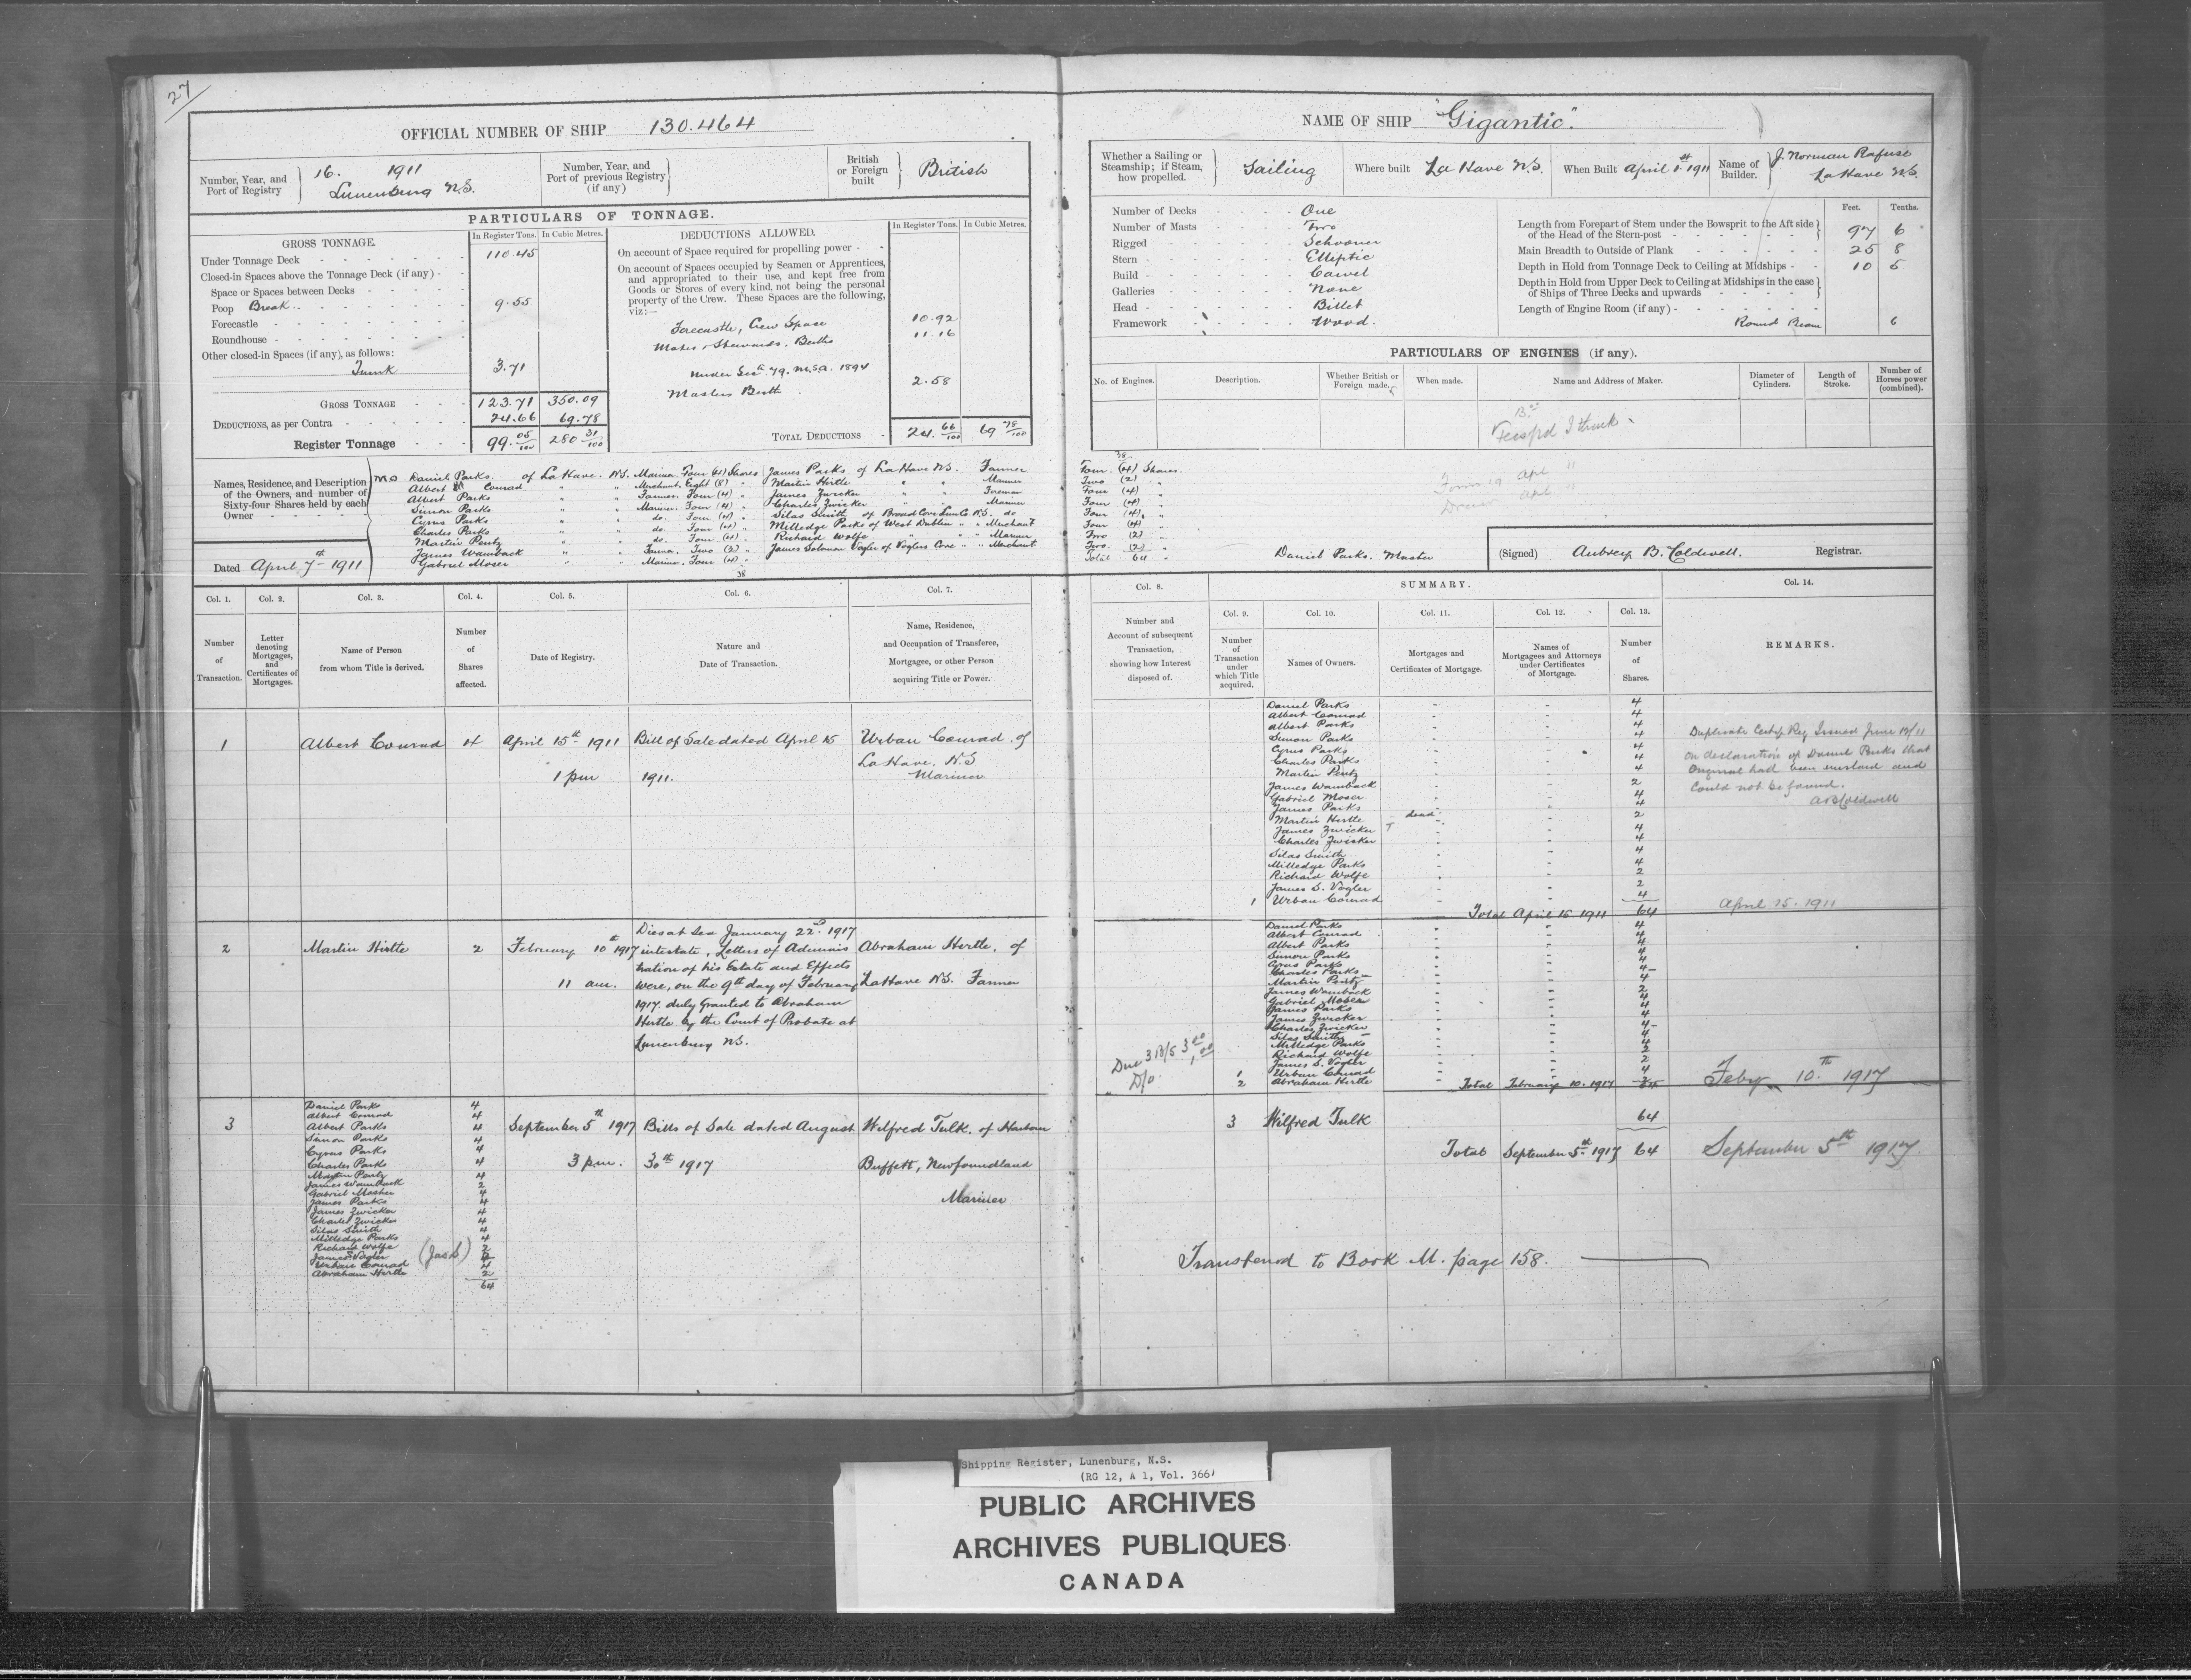 27
OFFICIAL NUMBER OF SHIP 130.464
Number, Year, and Port of Registry 16. 1911 Lunenburg N.S.
Number, Year, and Port of previous Registry (if any)
British or Foreign built British
PARTICULARS OF TONNAGE.
GROSS TONNAGE. In Register Tons. In Cubic Metres.
Under Tonnage Deck 110.45
Closed-in Spaces above the Tonnage Deck (if any)
Space or Spaces between Decks
Poop Break 9.55
Forecastle
Roundhouse
Other closed-in Spaces (if any), as follows:
Trunk 3.71
GROSS TONNAGE 123.71 350.09
DEDUCTIONS, as per Contra 24.66 69.78
Register Tonnage 99.05/100 280 31/100
DEDUCTIONS ALLOWED. In Register Tons. In Cubic Metres.
On account of Space required for propelling power
On account of Spaces occupied by Seamen or Apprentices,
and appropriated to their use, and kept free from
Goods or Stores of every kind, not being the personal
property of the Crew. These Spaces are the following,
viz:—
Forecastle, Crew Space 10.92
Mates, Stewards. Berths 11.16
Under Sec. 79. M.S.A. 1894
Masters Berth 2.58
TOTAL DEDUCTIONS 24. 66/100 69 78/100
Names, Residence, and Description
of the Owners, and number of
Sixty-four Shares held by each
Owner
Dated April 7th 1911
Daniel Parks. of La Have. N.S. Mariner. Four (4) Shares
Albert Conrad " " Merchant. Eight (8) "
Albert Parks " " Farmer. Four (4) "
Simon Parks " " Mariner. Four (4) "
Cyrus Parks " " do. Four (4) "
Charles Parks " " do. Four (4) "
Martin Pentz " " do. Four (4) "
James Wamback " " Farmer. Two (2) "
Gabriel Moser " " Mariner. Four (4) "
38
James Parks of La Have N.S. Farmer
Martin Hirtle " " Mariner
James Zwicker " " Foreman
Charles Zwicker " " Mariner
Silas Smith of Broad Cove Lun Co. N.S. do
Milledge Parks of West Dublin " " Merchant
Richard Wolfe " " " Mariner
James Solomon Vogler of Voglers Cove " " Merchant
NAME OF SHIP "Gigantic".
Whether a Sailing or Steamship; if Steam, how propelled. Sailing
Where built La Have N.S.
When Built April 1st 1911
Name of Builder. J. Norman Rafuse La Have N.S.
Number of Decks One
Number of Masts Two
Rigged Schooner
Stern Elliptic
Build Carvel
Galleries None
Head Billet
Framework Wood.
Feet. Tenths.
Length from Forepart of Stem under the Bowsprit to the Aft side
of the Head of the Stern-post 97 6
Main Breadth to Outside of Plank 25 8
Depth in Hold from Tonnage Deck to Ceiling at Midships 10 5
Depth in Hold from Upper Deck to Ceiling at Midships in the case
of Ships of Three Decks and upwards
Length of Engine Room (if any)
Round Beam 6
PARTICULARS OF ENGINES (if any).
No. of Engines. Description. Whether British or Foreign made. When made. Name and Address of Maker. Diameter of Cylinders. Length of Stroke. Number of Horses power (combined).
38
Four (4) Shares.
Two (2) "
Four (4) "
Four (4) "
Four (4) "
Four (4) "
Two (2) "
Two. (2) "
Total 64 "
Daniel Parks. Master
(Signed) Aubrey B. Coldwell. Registrar.
Col. 1. Col. 2. Col. 3. Col. 4. Col. 5. Col. 6. Col. 7.
Number of Transaction.
Letter denoting Mortgages, and Certificates of Mortgages.
Name of Person from whom Title is derived.
Number of Shares affected.
Date of Registry.
Nature and Date of Transaction.
Name, Residence, and Occupation of Transferee, Mortgagee, or other Person acquiring Title or Power.
1 Albert Conrad 4 April 15th 1911 Bill of Sale dated April 15 Urban Conrad of
1 pm 1911. La Have. N.S
Mariner
2 Martin Hirtle 2 February 10th 1917
11 am.
Dies at Sea January 22nd 1917
intestate, Letters of Adminis
tration of his Estate and Effects
were, on the 9th day of February
1917. duly Granted to Abraham
Hirtle by the Court of Probate at
Lunenburg N.S.
Abraham Hirtle, of
La Have N.S. Farmer
3
Daniel Parks 4
Albert Conrad 4
Albert Parks 4
Simon Parks 4
Cyrus Parks 4
Charles Parks 4
Martin Pentz 4
James Wamback 2
Gabriel Mosher 4
James Parks 4
James Zwicker 4
Charles Zwicker 4
Silas Smith 4
Milledge Parks 4
Richard Wolfe 2
James Vogler (Jas S) 2
Urban Conrad 4
Abraham Hirtle 2
64
September 5th 1917
3 pm.
Bills of Sale dated August
30th 1917
Wilfred Tulk. of Harbour
Buffett, Newfoundland
Mariner
Col. 8. SUMMARY. Col. 14.
Col. 9. Col. 10. Col. 11. Col. 12. Col. 13.
Number and Account of subsequent Transaction, showing how Interest disposed of.
Number of Transaction under which Title acquired.
Names of Owners.
Mortgages and Certificates of Mortgage.
Names of Mortgagees and Attorneys under Certificates of Mortgage.
Number of Shares.
REMARKS.
Daniel Parks 4
Albert Conrad 4
Albert Parks 4
Simon Parks 4
Cyrus Parks 4
Charles Parks 4
Martin Pentz 4
James Wamback 2
Gabriel Moser 4
James Parks 4
Martin Hirtle dead 2
James Zwicker 4
Charles Zwicker 4
Silas Smith 4
Milledge Parks 4
Richard Wolfe 2
James S. Vogler 2
1 Urban Conrad 4
Total April 15 1911 64
Duplicate Certif Reg Issued June 13/11
on declaration of Daniel Parks that
Original had been mislaid and
could not be found.
ABColdwell
April 15. 1911
Daniel Parks 4
Albert Conrad 4
Albert Parks 4
Simon Parks 4
Cyrus Parks 4
Charles Parks 4
Martin Pentz 4
James Wamback 2
Gabriel Moser 4
James Parks 4
James Zwicker 4
Charles Zwicker 4
Silas Smith 4
Milledge Parks 4
Richard Wolfe 2
James S. Vogler 2
1 Urban Conrad 4
2 Abraham Hirtle
Total February 10. 1917 64
Feby 10.th 1917
3 Wilfred Tulk 64
Total September 5th 1917 64
September 5th 1917.
Transferred to Book M. page 158.
Shipping Register, Lunenburg, N.S.
(RG 12, A 1, Vol. 366)
PUBLIC ARCHIVES
ARCHIVES PUBLIQUES
CANADA